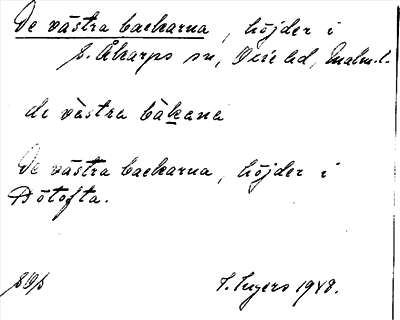 De västra backarna, höjder i
S. Åkarps sn, Oxie hd, Malm. l.
de västra bàkana
De västra backarna, höjder i
Dötofta.
1948.